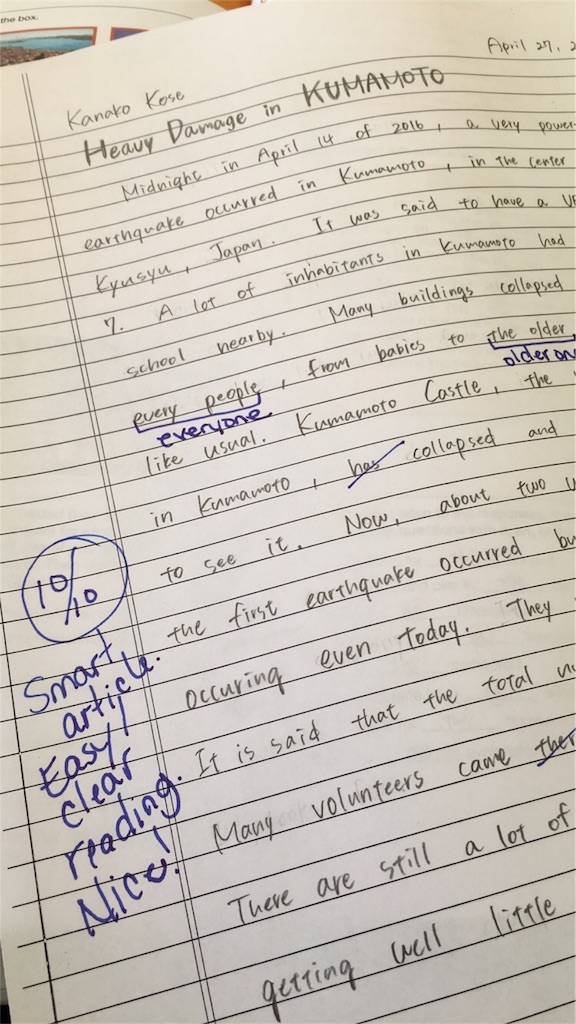 the box.
April 27, 2
Kanako Kose
Heavy Damage in KUMAMOTO
Midnight in April 14 of 2016, a very power-
earthquake occurred in Kumamoto, in the center
Kyusyu, Japan. It was said to have a
7. A lot of inhabitants in Kumamoto had
school nearby. Many buildings collapsed
every people, from babies to the older
everyone older on
like usual. Kumamoto Castle, the
in Kumamoto, has collapsed and
to see it. Now, about two
10/10
the first earthquake occurred bu
Smart article. Easy/clear reading. Nice!
occuring even today. They
It is said that the total
Many volunteers came
There are still a lot of
getting well little